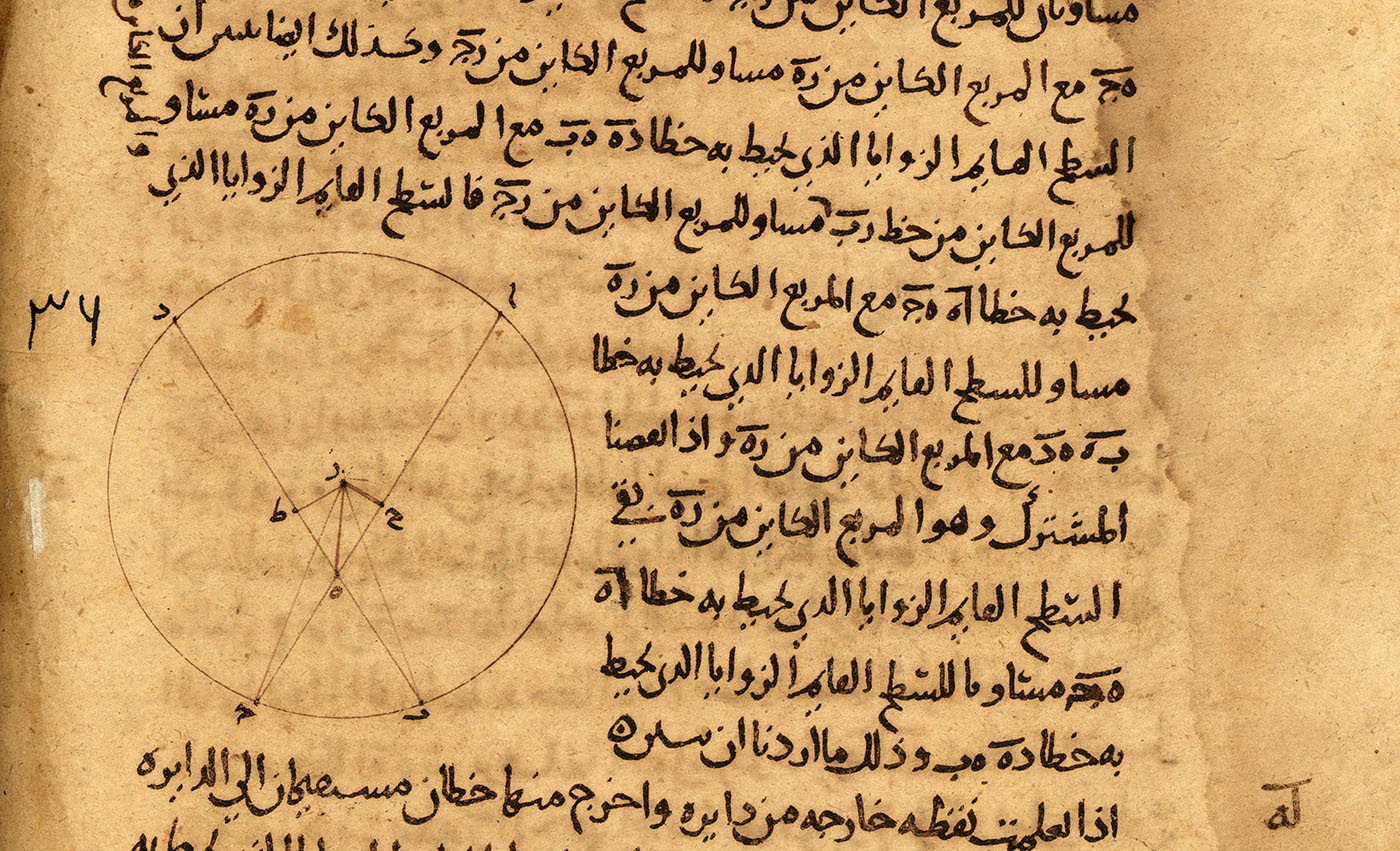 مساويان للمربع الكاين من
ه‍ج مع المربع الكاين من ره مساو للمربع الكاين من رج وكذلك ايضا نبين ان
السطح القايم الزوايا الذي يحيط به خطا ده هب مع المربع الكاين من ره مساو
للمربع الكاين من خط رب مساو للمربع الكاين من رج فالسطح القايم الزوايا الذي
يحيط به خطا اه هج مع المربع الكاين من ره
مساو للسطح القايم الزوايا الذي يحيط به خطا
به هد مع المربع الكاين من ره واذا نقصنا
المشترك وهو المربع الكاين من ره بقي
السطح القايم الزوايا الذي يحيط به خطا اه
هج مساويا للسطح القايم الزوايا الذي يحيط
به خطا ده هب وذلك ما اردنا ان نبين
اذا تعلمت نقطه خارجه من دايره واخرج منها خطان مستقيمان الي الدايره
له
٣٤
د
ا
ر
ط
ح
ه
ج
ب